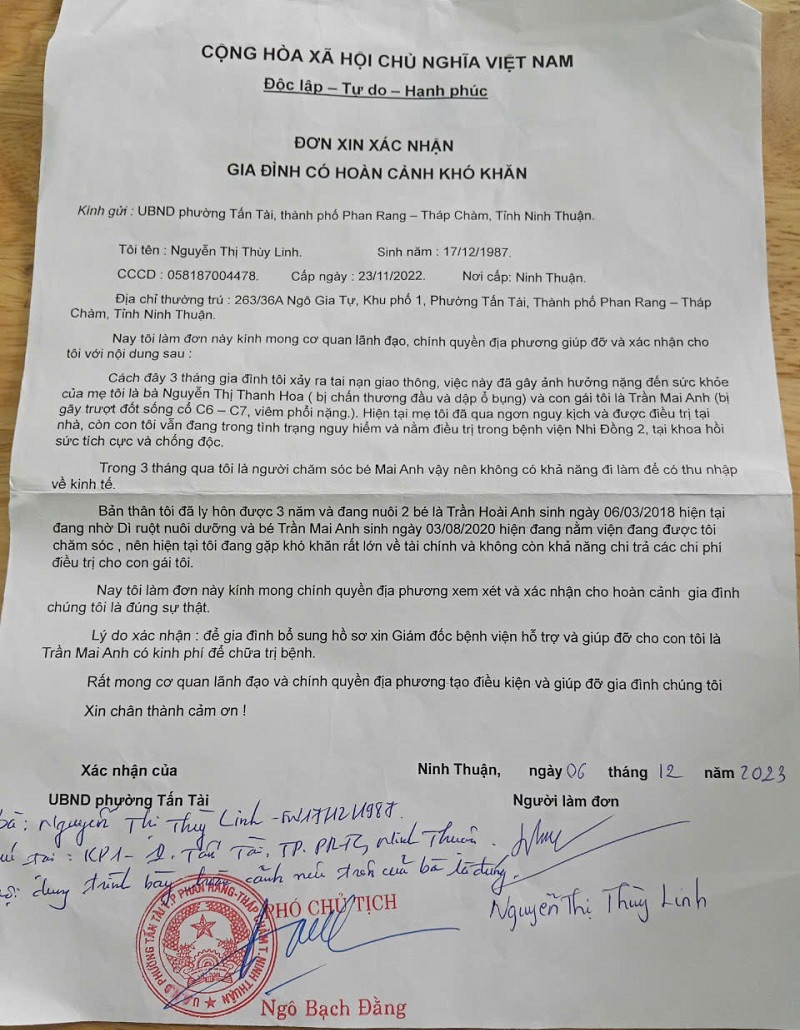 CỘNG HÒA XÃ HỘI CHỦ NGHĨA VIỆT NAM
Độc lập – Tự do – Hạnh phúc
ĐƠN XIN XÁC NHẬN
GIA ĐÌNH CÓ HOÀN CẢNH KHÓ KHĂN
Kính gửi : UBND phường Tấn Tài, thành phố Phan Rang – Tháp Chàm, Tỉnh Ninh Thuận.
Tôi tên : Nguyễn Thị Thùy Linh. Sinh năm : 17/12/1987.
CCCD : 058187004478. Cấp ngày : 23/11/2022. Nơi cấp: Ninh Thuận.
Địa chỉ thường trú : 263/36A Ngô Gia Tự, Khu phố 1, Phường Tấn Tài, Thành phố Phan Rang – Tháp
Chàm, Tỉnh Ninh Thuận.
Nay tôi làm đơn này kính mong cơ quan lãnh đạo, chính quyền địa phương giúp đỡ và xác nhận cho
tôi với nội dung sau :
Cách đây 3 tháng gia đình tôi xảy ra tai nạn giao thông, việc này đã gây ảnh hưởng nặng đến sức khỏe
của mẹ tôi là bà Nguyễn Thị Thanh Hoa ( bị chấn thương đầu và dập ổ bụng) và con gái tôi là Trần Mai Anh (bị
gãy trượt đốt sống cổ C6 – C7, viêm phổi nặng.). Hiện tại mẹ tôi đã qua ngơn nguy kịch và được điều trị tại
nhà, còn con tôi vẫn đang trong tình trạng nguy hiểm và nằm điều trị trong bệnh viện Nhi Đồng 2, tại khoa hồi
sức tích cực và chống độc.
Trong 3 tháng qua tôi là người chăm sóc bé Mai Anh vậy nên không có khả năng đi làm để có thu nhập
về kinh tế.
Bản thân tôi đã ly hôn được 3 năm và đang nuôi 2 bé là Trần Hoài Anh sinh ngày 06/03/2018 hiện tại
đang nhờ Dì ruột nuôi dưỡng và bé Trần Mai Anh sinh ngày 03/08/2020 hiện đang nằm viện đang được tôi
chăm sóc , nên hiện tại tôi đang gặp khó khăn rất lớn về tài chính và không còn khả năng chi trả các chi phí
điều trị cho con gái tôi.
Nay tôi làm đơn này kính mong chính quyền địa phương xem xét và xác nhận cho hoàn cảnh gia đình
chúng tôi là đúng sự thật.
Lý do xác nhận : để gia đình bổ sung hồ sơ xin Giám đốc bệnh viện hỗ trợ và giúp đỡ cho con tôi là
Trần Mai Anh có kinh phí để chữa trị bệnh.
Rất mong cơ quan lãnh đạo và chính quyền địa phương tạo điều kiện và giúp đỡ gia đình chúng tôi
Xin chân thành cảm ơn !
Xác nhận của Ninh Thuận, ngày 06 tháng 12 năm 2023
UBND phường Tấn Tài Người làm đơn
bà: Nguyễn Thị Thùy Linh - 17/12/1987.
tại: KP1 - P. Tấn Tài, TP. PRTC, Ninh Thuận.
nội dung trình bày hoàn cảnh nêu trên của bà là đúng.
PHÓ CHỦ TỊCH
Nguyễn Thị Thùy Linh
U.B.D PHƯỜNG TẤN TÀI T.P PHAN RANG-THÁP CHÀM T. NINH THUẬN
Ngô Bạch Đằng